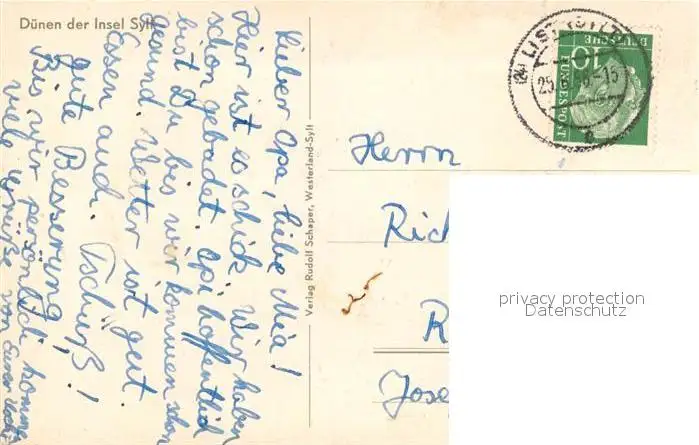 Dünen der Insel Sylt
Lieber Opa, liebe Mia!
Hier ist es schick. Wir haben
schon gebadet. Opi hoffentlich
bist Du bis wir kommen schon
gesund. Wetter ist gut.
Essen auch. Tschüß!
Gute Besserung!
Bis wir persönlich kommen
viele Grüße von Eurer
Verlag Rudolf Schaper, Westerland-Sylt
LIST (SYLT)
25. 56-15
a
DEUTSCHE
10
BUNDESPOST
Herrn
Rich
R
Jose
privacy protection
Datenschutz